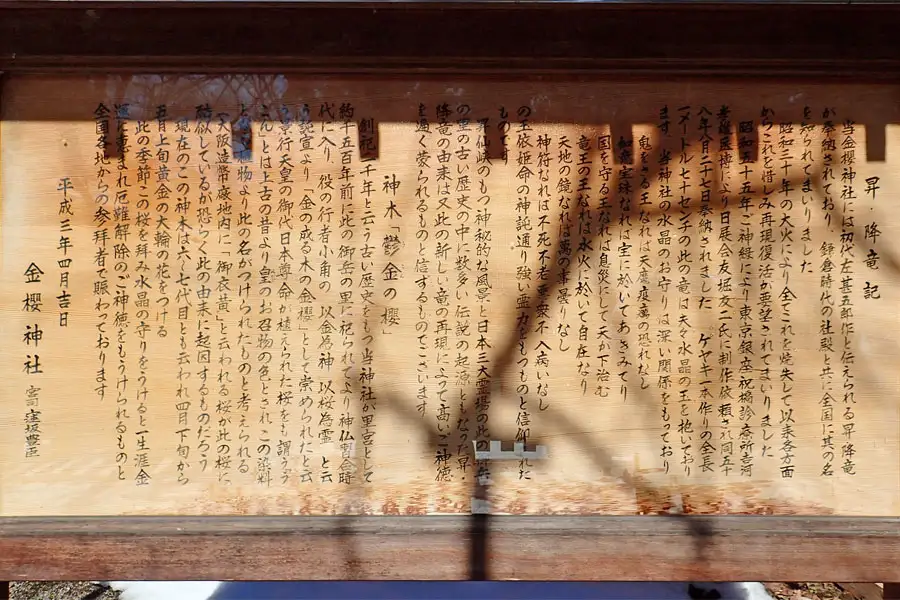 昇・降竜記
当金櫻神社には初代左甚五郎作と伝えられる昇降竜
が奉納されており、鎌倉時代の社殿と共に全国に其の名
を知られてまいりました
昭和三十年の大火により全てこれを焼失して以来各方面
からこれを惜しみ再現復活が要望されてまいりました
昭和五十五年ご神縁により東京銀座祝橋診療所吉河
により日展会友堀友二氏に制作依頼され同五十
八年八月二十七日奉納されました ケヤキ一本作りの全長
一メートル七十センチの此の竜は夫々水晶の玉を抱いており
ます、当神社の水晶のお守りは深い関係をもっており
鬼をさる王なれば天魔疫癘の恐れなし
如意宝珠なれば宝に於いてあきみてり
国を守る王なれば息災にして天が下治む
竜王の王なれば水火に於いて自在なり
天地の鏡なれば萬の事曇りなし
神符なれば不死不老悪衆不入病いなし
の玉依姫命の神託通り強い霊力をもつものと信仰された
ものです
昇仙峡のもつ神秘的な風景と日本三大霊場の此の
の里の古い歴史の中に数多い伝説の起源ともなった昇・
降竜の由来は又此の新しい竜の再現によって高いご神徳
を遍く蒙られるものと信するものでございます
神木「鬱金の櫻」
創祀二千年と云う古い歴史をもつ当神社が里宮として
約千五百年前に此の御岳の里に祀られてより神仏習合時
代に入り、役の行者小角の、以金為神、以桜為霊、と云
う託宣より「金の成る木の金櫻」として崇められたと云
う景行天皇の御代日本尊命が植えられた桜をも謂うう
こんとは上古の昔より皇のお召物の色とされこの染料
とより此の名がつけられたものと考えられる
「大阪造幣廠地内に「御衣黄」と云われる桜が此の桜に
酷似しているが恐らく此の由来に起因するものだろう
現在のこの神木は六〜七代目とも云われ四月下旬から
五月上旬黄金の大輪の花をつける
此の季節この桜を拝み水晶の守りをうけると一生涯金
運に恵まれ厄難解除のご神徳をもうけられるものと
全国各地からの参拝者で賑わっております
平成三年四月吉日
金櫻神社 宮司 窪坂豊臣